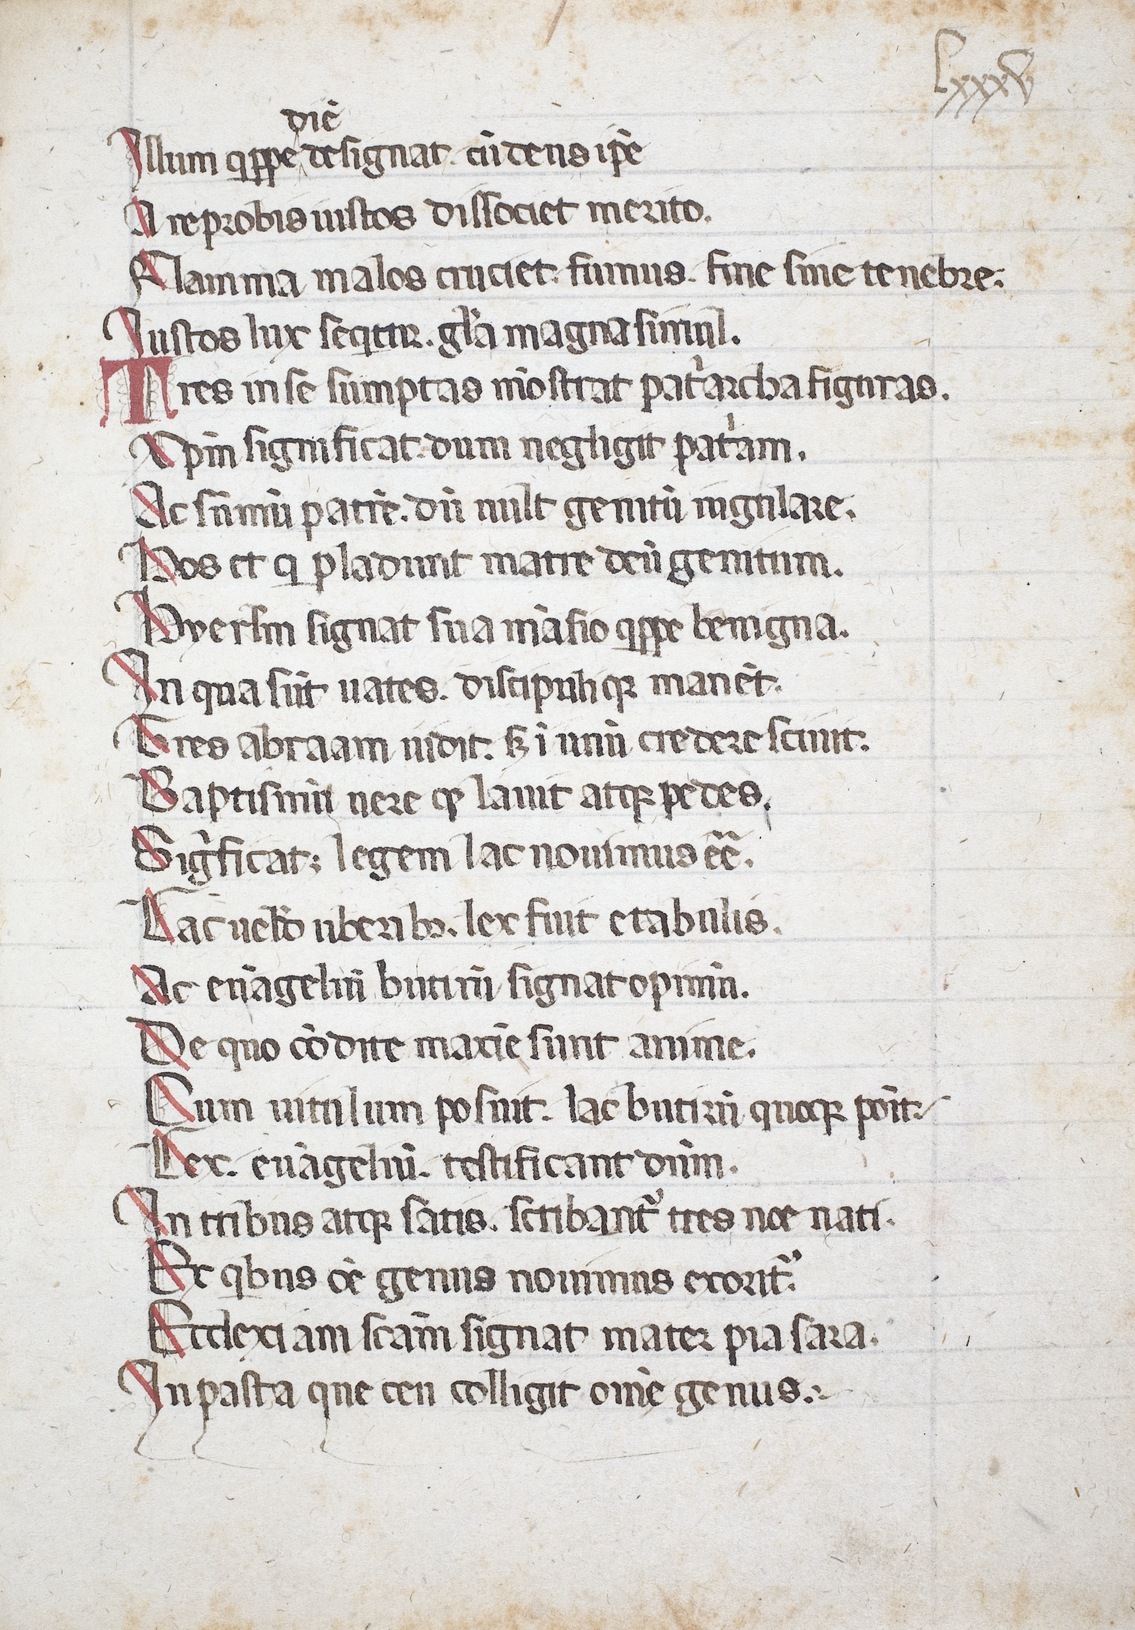 Lxxxv
diē
Illum q̄ppe designat. cū dens ip̄e
A reprobis iustos dissociet merito.
Flamma malos cruciet. fumus. fine sine tenebre.
Iustos lux seq̄tur. gl̄a magna simul.
Tres in se sumptas mōstrat pat'archa figuras.
Xp̄m significat. dum negligit pat'am.
Ac sūmū patrē. dū uult genitū iugulare.
Hos et q̄ pladunt matre deū genitum.
Hyerl̄m signat sua māsio q̄ppe benigna.
In qua sūt uates. discipuliqꝫ manēt.
Tres abraam uidit. sꝫ ī unū credere sciuit.
Baptismū uere ꝙ lauit atqꝫ pedes.
Sig'ficat; legem lac nouimus eē̄.
Lac uest̄o uberibꝫ. lex fuit e tabulis.
Ac euāgeliū butirū signat opimū.
De quo cōdite maxīe sunt anime.
Cum uitulum posuit. lac butirū quoqꝫ pōit.
Lex. euāgeliū. testificant dn̄m.
In tribus atqꝫ satis. sc̄ibant᷑ tres noe nati.
Ex qͥbus oē genus nouimus exorit᷑.
Ecclexiam sc̄am signat mater pia sara.
In pasta que ceu colligit om̄e genus.